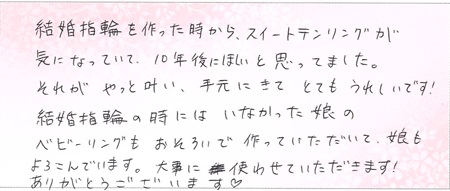 結婚指輪を作った時から、スイートテンリングが
気になっていて、10年後にほしいと思ってました。
それが やっと叶い、手元にきて とてもうれしいです!
結婚指輪の時には いなかった娘の
ベビーリングも おそろいで 作っていただいて、娘も
よろこんでいます。大事に 使わせていただきます!
ありがとうございます♡